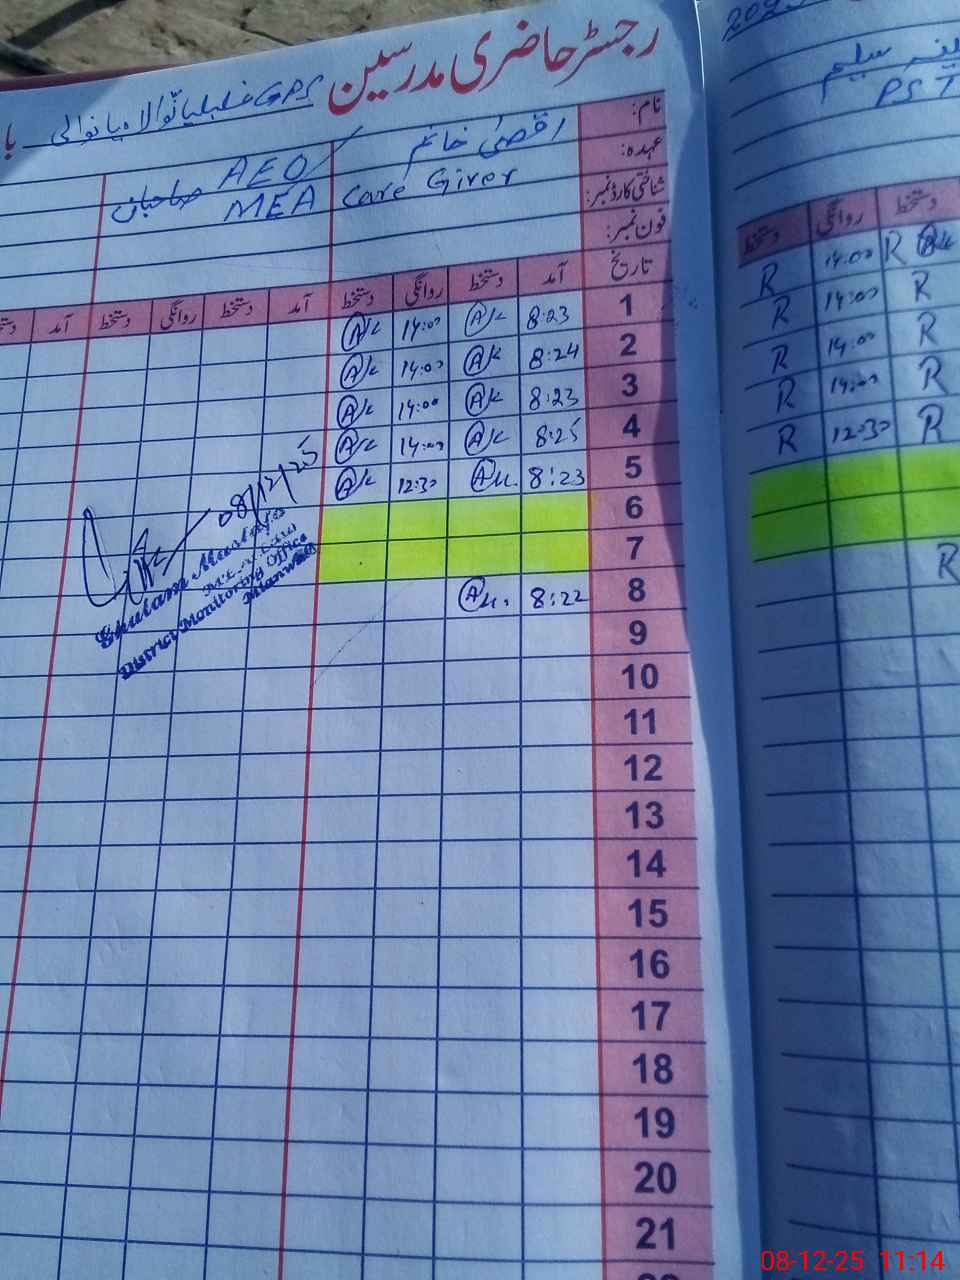 رجسٹر حاضری مدرسین GPS
2025
نام: اقصیٰ خانم
عہدہ: Care Giver
AEO صاحبان
MEA
شناختی کارڈ نمبر:
فون نمبر:
PST
تاریخ آمد دستخط روانگی دستخط آمد دستخط روانگی دستخط آمد
دستخط روانگی دستخط
1 8:23 AK 14:00 AK
2 8:24 AK 14:00 AK
3 8:23 AK 14:00 AK
4 8:25 AK 14:00 AK
5 8:23 AK 12:30 AK
6
7
8 8:22 AK
9
10
11
12
13
14
15
16
17
18
19
20
21
R 14:00 R
R 14:00 R
R 14:00 R
R 14:00 R
R 12:30 R
R
08/12/25
Ghulam Murtaza
District Monitoring Office
Mianwali
08-12-25 11:14